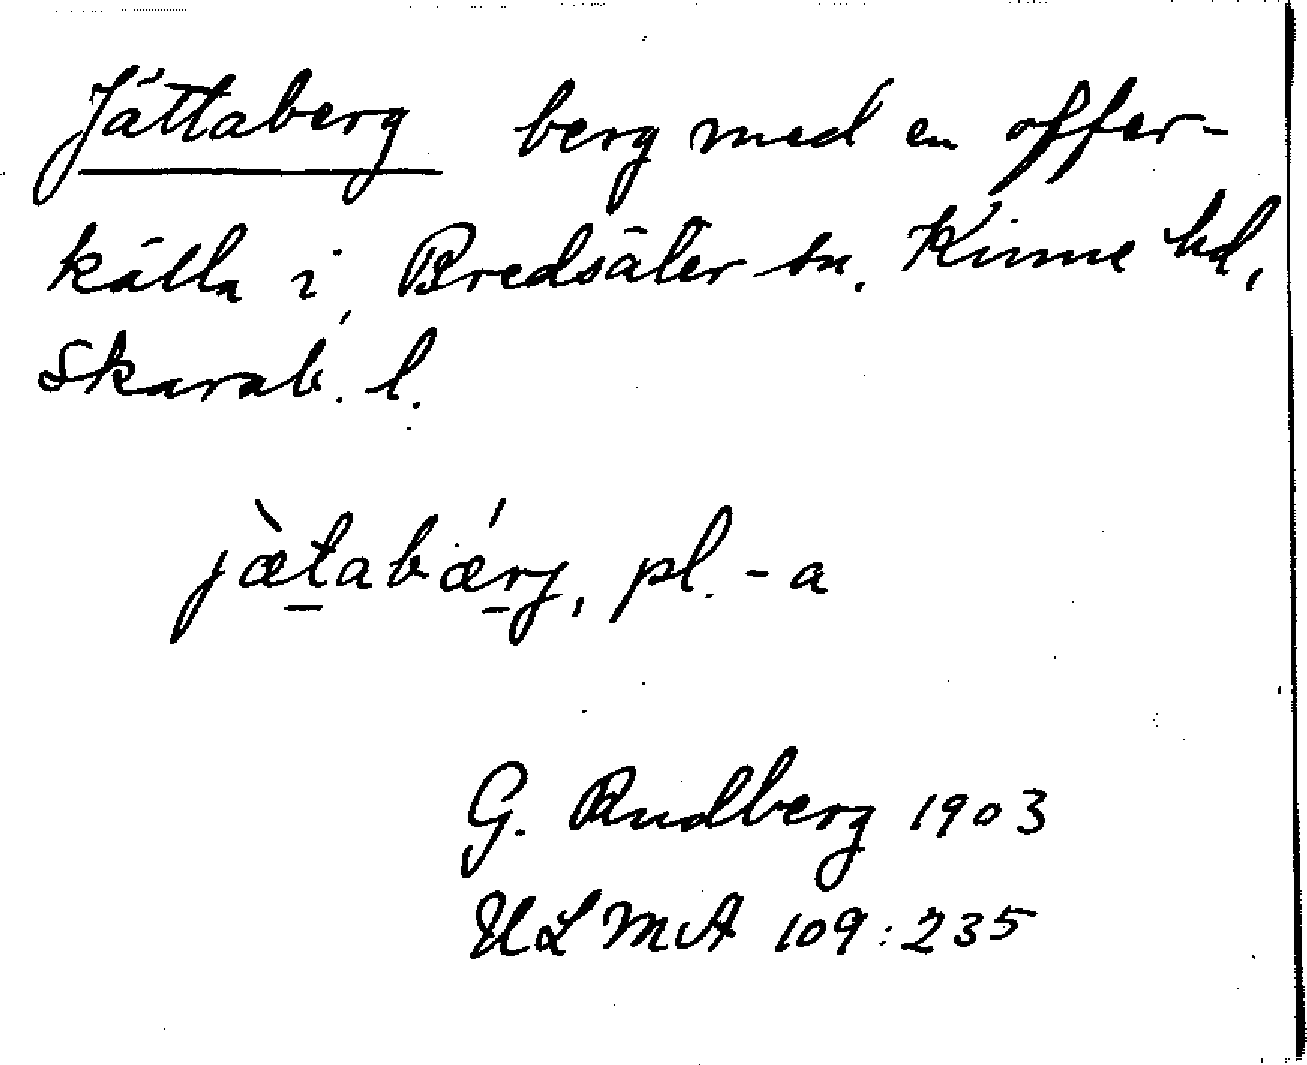 Jättaberg berg med en offer-
källa i Bredsäter sn. Kinne hd,
Skarab. l.
jæ̀tabǽrj, pl. -a
G. Rudberg 1903
ULMA 109:235